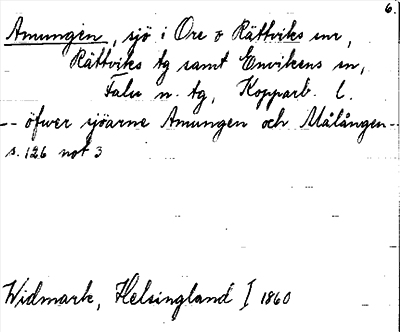 6.
Amungen, sjö i Ore o Rättviks snr,
Rättviks tg samt Envikens sn,
Falu n. tg, Kopparb. l.
-- öfwer sjöarne Amungen och Målången--
s. 126 not 3
Widmark, Helsingland I 1860